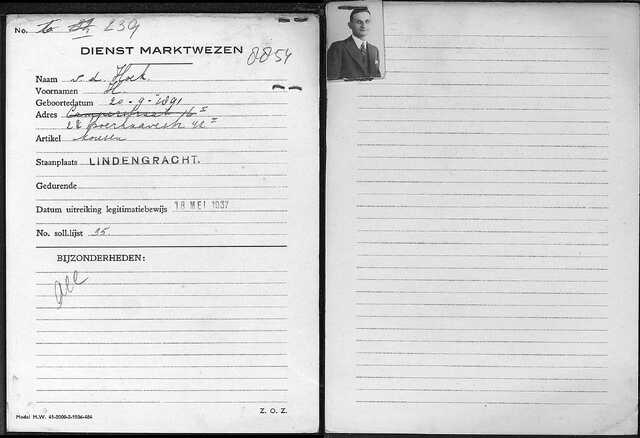 No. 239
DIENST MARKTWEZEN
8854
Naam v. d. Hoek.
Voornamen H.
Geboortedatum 20-9-1891
Adres Camperstraat 16 I
2e Boerhaavestr 42 I
Artikel
Staanplaats LINDENGRACHT.
Gedurende
Datum uitreiking legitimatiebewijs 18 MEI 1937
No. soll.lijst 35.
BIJZONDERHEDEN:
Model M.W. 41-2000-2-1936-484
Z. O. Z.